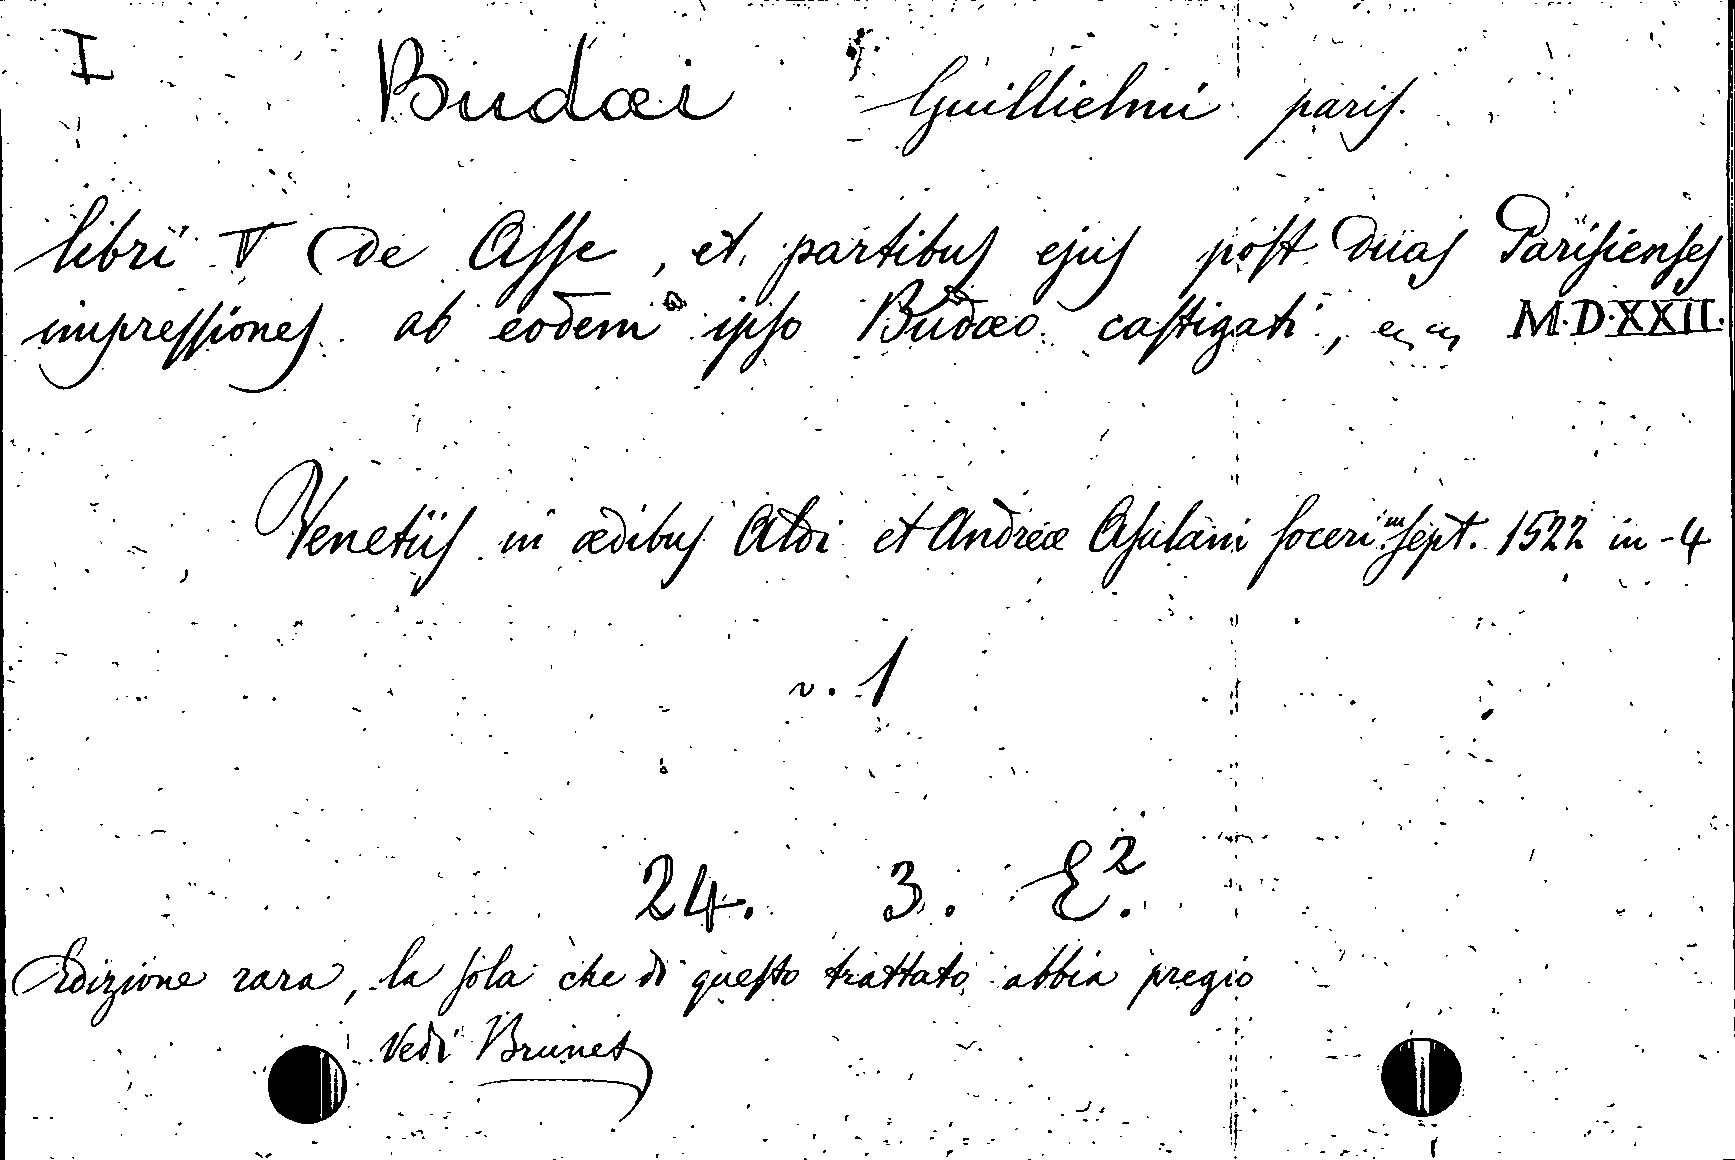 I Budæi Guillielmi paris.
libri V de Asse, et partibus ejus post duas Parisienses
impressiones ab eodem ipso Budæo castigati, M.D.XXII.
Venetiis in ædibus Aldi et Andreæ Asulani soceri m sept. 1522 in-4
v. 1
24. 3. E².
Edizione rara, la sola che di questo trattato abbia pregio
Vedi Brunet